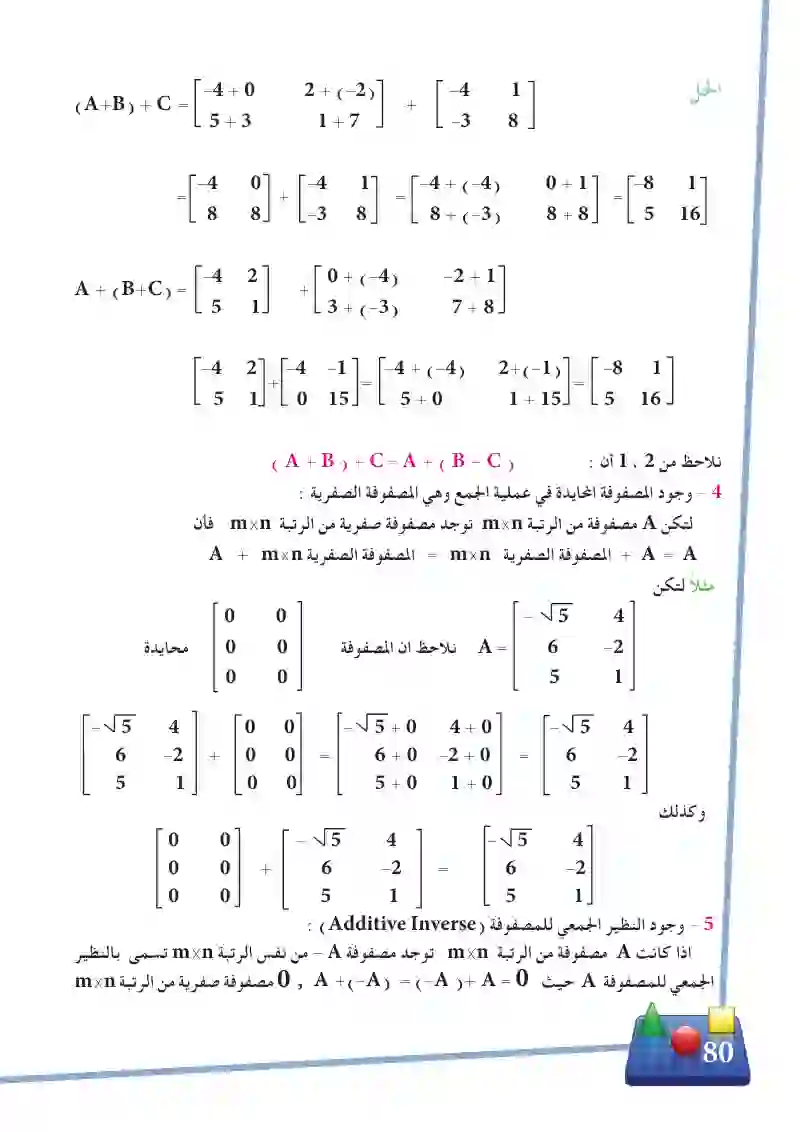 الحل
(A+B) + C = [ -4 + 0   2 + (-2) ; 5 + 3   1 + 7 ] + [ -4   1 ; -3   8 ]
= [ -4   0 ; 8   8 ] + [ -4   1 ; -3   8 ] = [ -4 + (-4)   0 + 1 ; 8 + (-3)   8 + 8 ] = [ -8   1 ; 5   16 ]
A + (B+C) = [ -4   2 ; 5   1 ] + [ 0 + (-4)   -2 + 1 ; 3 + (-3)   7 + 8 ]
[ -4   2 ; 5   1 ] + [ -4   -1 ; 0   15 ] = [ -4 + (-4)   2+(-1) ; 5 + 0   1 + 15 ] = [ -8   1 ; 5   16 ]
نلاحظ من 2 ، 1 أن : ( A + B ) + C = A + ( B - C )
4 - وجود المصفوفة المحايدة في عملية الجمع وهي المصفوفة الصفرية :
لتكن A مصفوفة من الرتبة m×n توجد مصفوفة صفرية من الرتبة m×n فأن
A + m×n المصفوفة الصفرية = m×n المصفوفة الصفرية + A = A
مثلاً لتكن
A = [ -√5   4 ; 6   -2 ; 5   1 ] نلاحظ ان المصفوفة [ 0   0 ; 0   0 ; 0   0 ] محايدة
[ -√5   4 ; 6   -2 ; 5   1 ] + [ 0   0 ; 0   0 ; 0   0 ] = [ -√5 + 0   4 + 0 ; 6 + 0   -2 + 0 ; 5 + 0   1 + 0 ] = [ -√5   4 ; 6   -2 ; 5   1 ]
وكذلك
[ 0   0 ; 0   0 ; 0   0 ] + [ -√5   4 ; 6   -2 ; 5   1 ] = [ -√5   4 ; 6   -2 ; 5   1 ]
5 - وجود النظير الجمعي للمصفوفة (Additive Inverse) :
اذا كانت A مصفوفة من الرتبة m×n توجد مصفوفة A - من نفس الرتبة m×n تسمى بالنظير
الجمعي للمصفوفة A حيث A +(-A) = (-A )+ A = 0 , 0 مصفوفة صفرية من الرتبة m×n
80